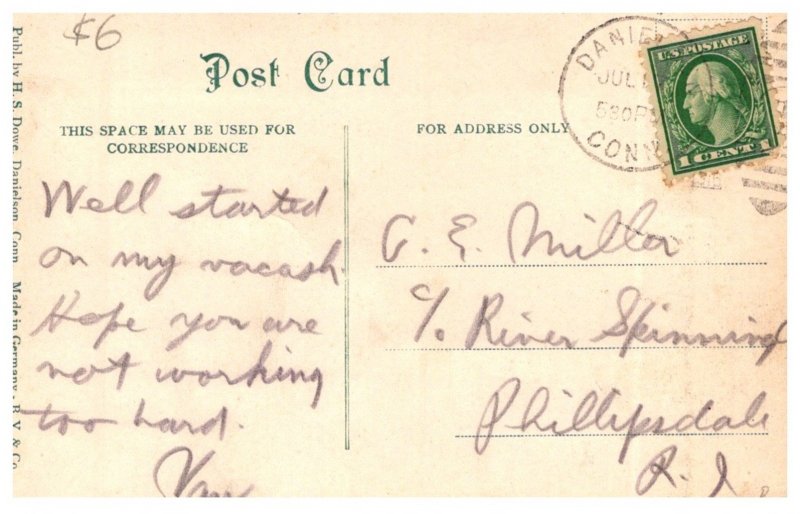 $6
Publ. by H. S. Dowe, Danielson, Conn. Made in Germany. B. V. & Co
Post Card
THIS SPACE MAY BE USED FOR
CORRESPONDENCE
FOR ADDRESS ONLY
DANIEL
JUL
530P
CONN
U.S. POSTAGE
1 CENT 1
Well started
on my vacash.
Hope you are
not working
too hard.
Van
C. E. Miller
c/o River Spinning
Phillipsdale
R. I.